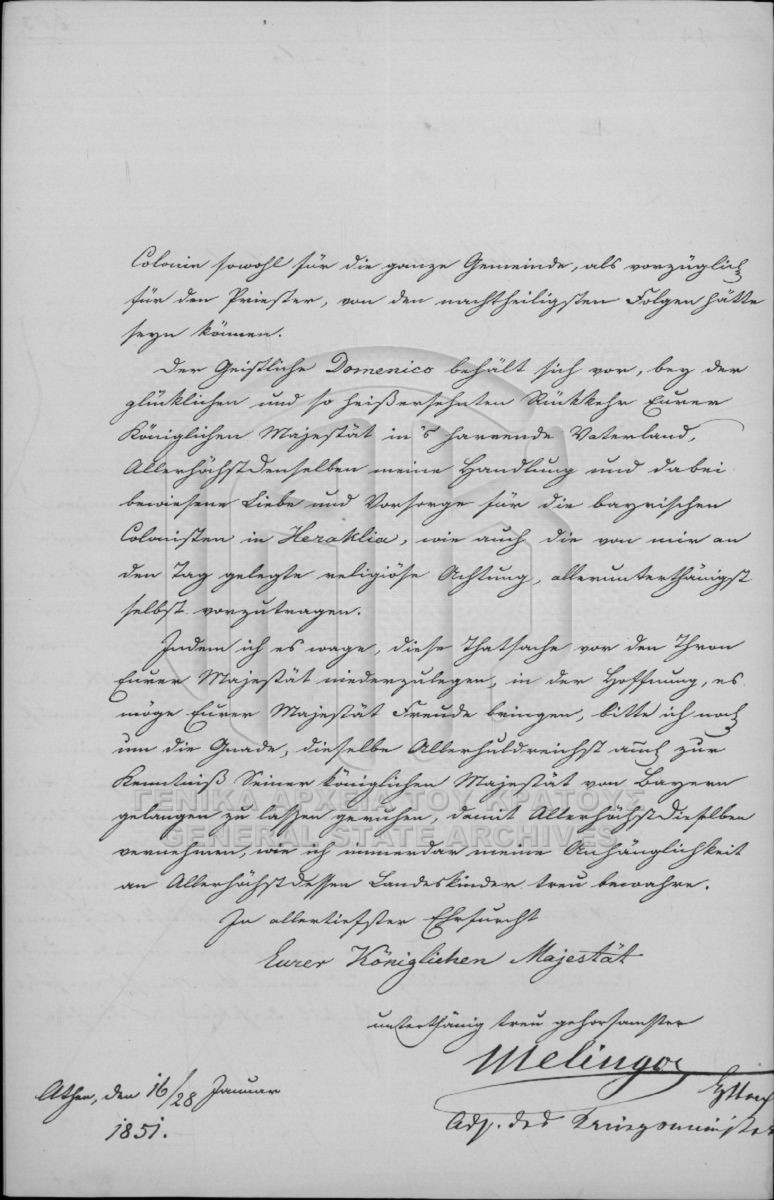 Colonie sowohl für die ganze Gemeinde, als vorzüglich
für den Priester, von den nachtheiligsten Folgen hätte
seyn können.
Der Geistliche Domenico behält sich vor, bey der
glücklichen und so heißersehnten Rükkehr Eurer
Königlichen Majestät in's harrende Vaterland,
Allerhöchstdenselben meine Handlung und dabei
bewiesene Liebe und Vorsorge für die bayrischen
Colonisten in Heraklia, wie auch die von mir an
den Tag gelegte religiöse Achtung, allerunterthänigst
selbst vorzutragen.
Indem ich es wage, diese Thatsache vor den Thron
Eurer Majestät niederzulegen, in der Hoffnung, es
möge Eurer Majestät Freude bringen, bitte ich noch
um die Gnade, dieselbe Allerhuldreichst auch zur
Kenntniß Seiner königlichen Majestät von Bayern
gelangen zu lassen geruhen, damit Allerhöchstdieselben
vernehmen, wie ich immerdar meine Anhänglichkeit
an Allerhöchstdessen Landeskinder treu bewahre.
In allertiefster Ehrfurcht
Eurer Königlichen Majestät
unterthänig treu gehorsamster
Melingo
Athen, den 16/28 Januar
1851.
Adj. des Kriegsminister
ΓΕΝΙΚΑ ΑΡΧΕΙΑ ΤΟΥ ΚΡΑΤΟΥΣ
GENERAL STATE ARCHIVES